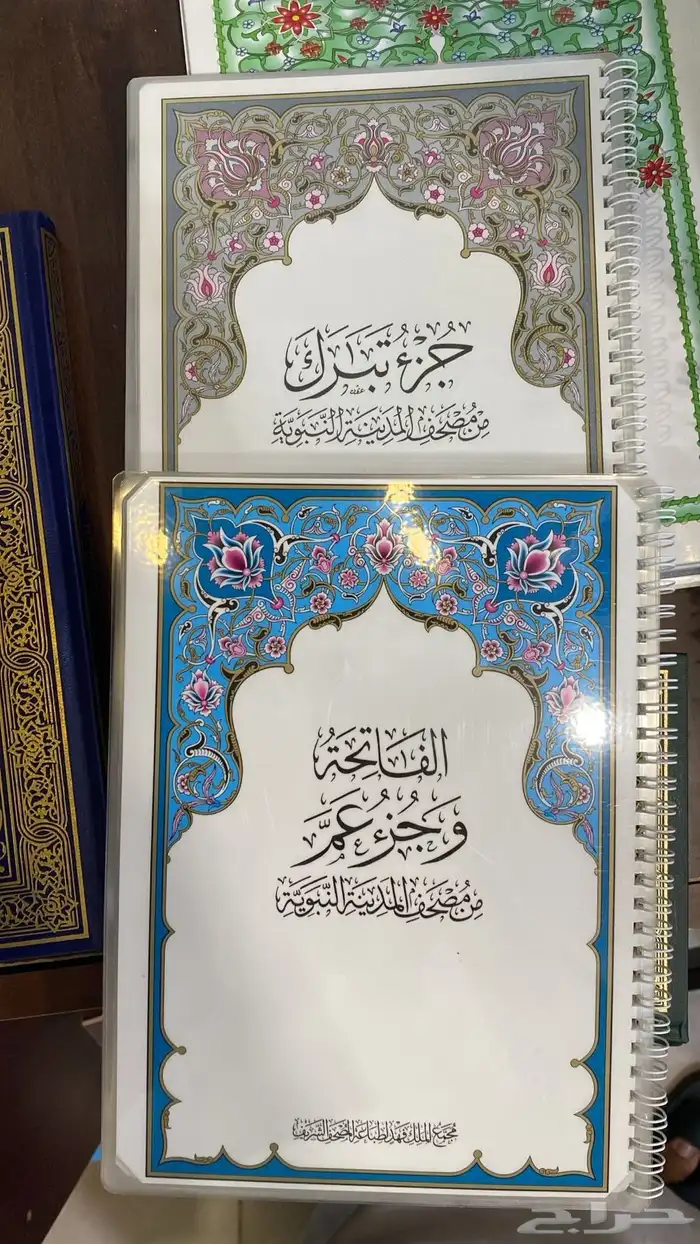 جُزْءُ تَبَٰرَكَ
مِن مُصْحَفِ المَدِينَةِ النَّبَوِيَّةِ
الفَاتِحَةُ
وَجُزْءُ عَمَّ
مِن مُصْحَفِ المَدِينَةِ النَّبَوِيَّةِ
مجمع الملك فهد لطباعة المصحف الشريف
حراج